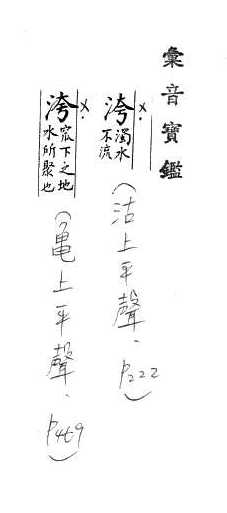 彙音寶鑑
洿 濁水
不流
(沽上平聲、P222)
洿 窊下之地
水所聚也
(龜上平聲、P469)